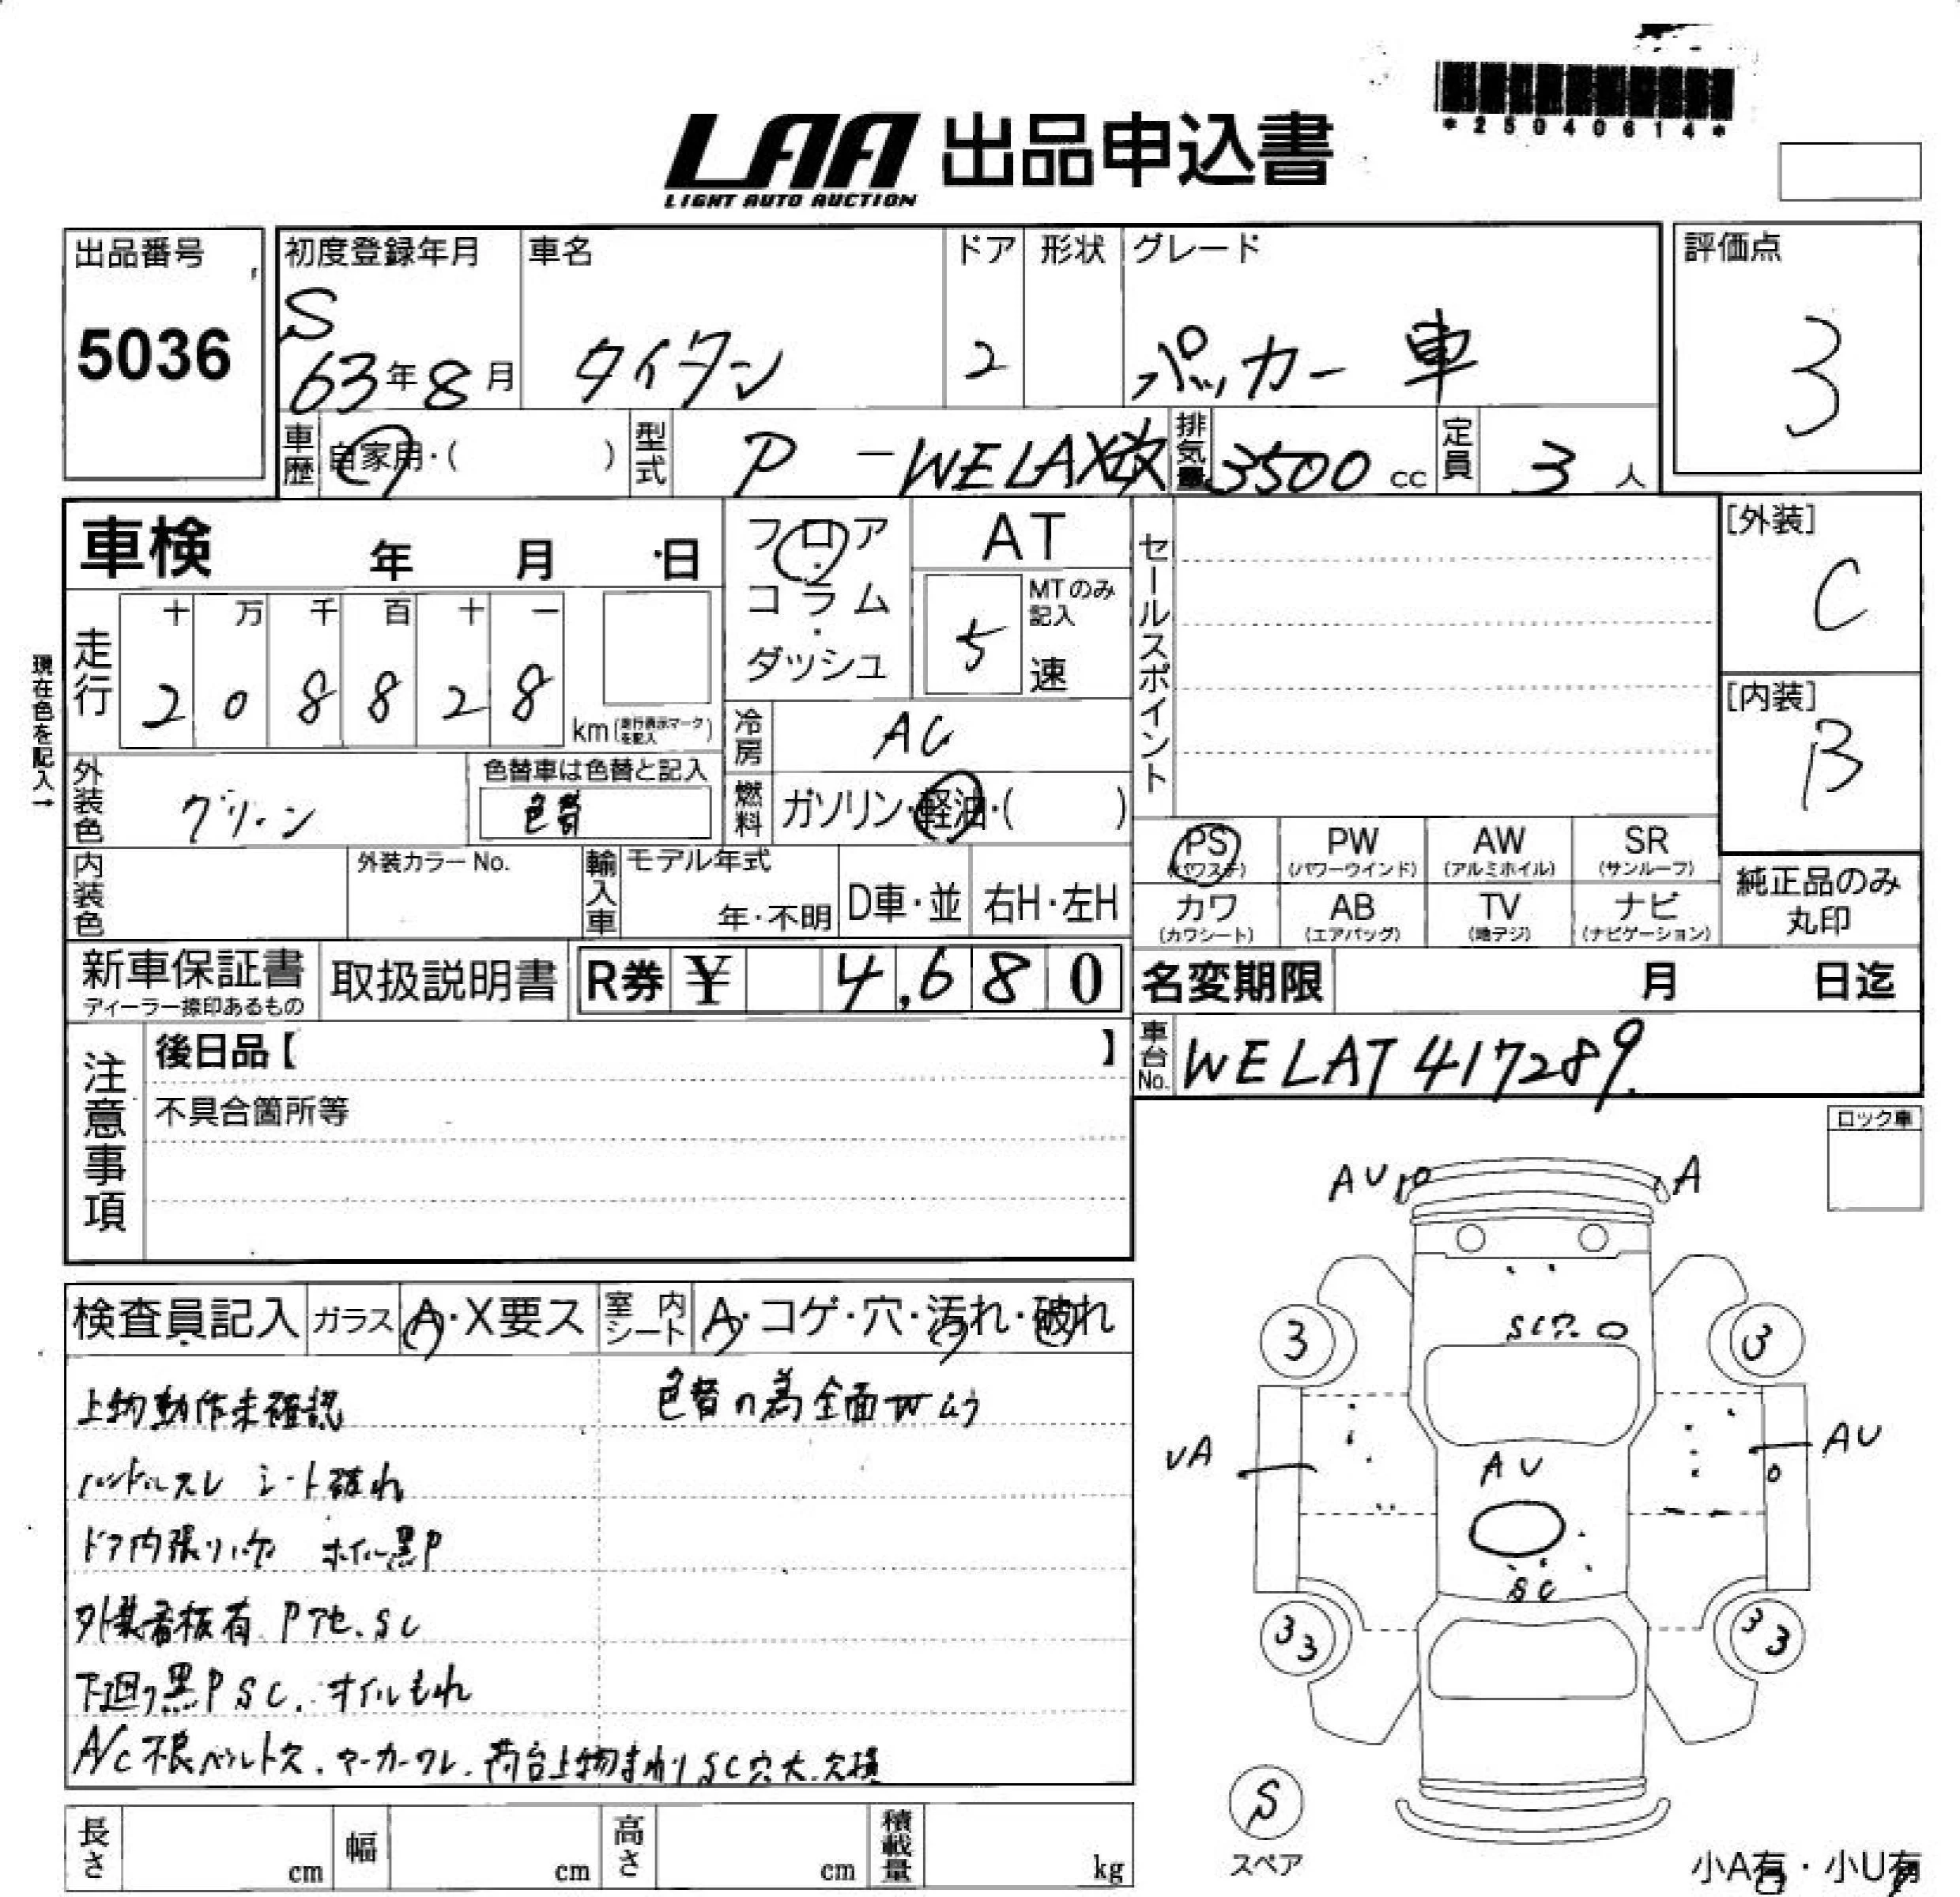 *25040614*
LAA 出品申込書
LIGHT AUTO AUCTION
出品番号 初度登録年月 車名 ドア 形状 グレード 評価点
5036 S 63年8月 タイタン 2 パッカー車 3
車歴 自家用・( ) 型式 P-WELAX改 排気量 3500 cc 定員 3 人
車検 年 月 日 フロア・コラム・ダッシュ AT セールスポイント [外装] C
5 MTのみ記入 速
現在色を記入→
走行 十 万 千 百 十 一
2 0 8 8 2 8 km (走行表示マークを記入) [内装] B
冷房 AC
外装色 グリーン 色替車は色替と記入 色替 燃料 ガソリン・軽油・( )
PS (パワステ) PW (パワーウインド) AW (アルミホイル) SR (サンルーフ)
内装色 外装カラーNo. 輸入車 モデル年式 年・不明 D車・並 右H・左H
カワ (カワシート) AB (エアバッグ) TV (地デジ) ナビ (ナビゲーション) 純正品のみ丸印
新車保証書 ディーラー捺印あるもの 取扱説明書 R券 ¥ 4,680 名変期限 月 日迄
注意事項 後日品【 】 車台No. WELAT417289
不具合箇所等
ロック車
AU A
検査員記入 ガラス A・X要ス 室内シート A・コゲ・穴・汚れ・破れ
SC穴
3 3
上物動作未確認 色替の為全面ムラ
ハンドルスレ シート破れ
UA AU AU
ドア内張り穴 ホイル黒P
SC
外装看板有 Pアセ、SC
33 33
下廻り黒P SC、オイルもれ
A/C不良ベルト欠、マーカーワレ、荷台上物まわりSC穴大、欠損
S
スペア
長さ cm 幅 cm 高さ cm 積載量 kg
小A有・小U有